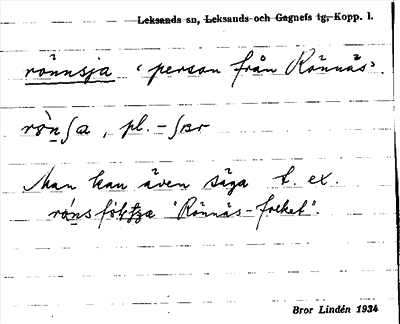 Leksands sn, Leksands och Gagnefs tg, Kopp. l.
rönnsja ‹person från Rönnäs›.
rø̀nʃa, pl. -ʃɐr
Man kan även säga t. ex.
"Rönnäs-folket".
Bror Lindén 1934